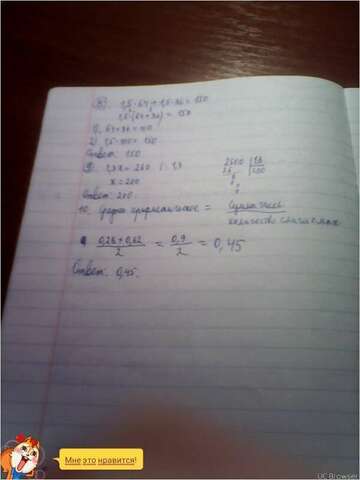 8. 1,5·64+1,5·36=150
1,5·(64+36)=150
1) 64+36=100
2) 1,5·100=150
Ответ: 150
9. 1,3x=260 : 1,3
x=200
2600 | 13
26 | 200
0
0
0
Ответ: 200.
10. Среднее арифметическое = Сумма чисел
количество слагаемых
0,28+0,62 / 2 = 0,9 / 2 = 0,45
Ответ: 0,45.
Мне это нравится!
UC Browser